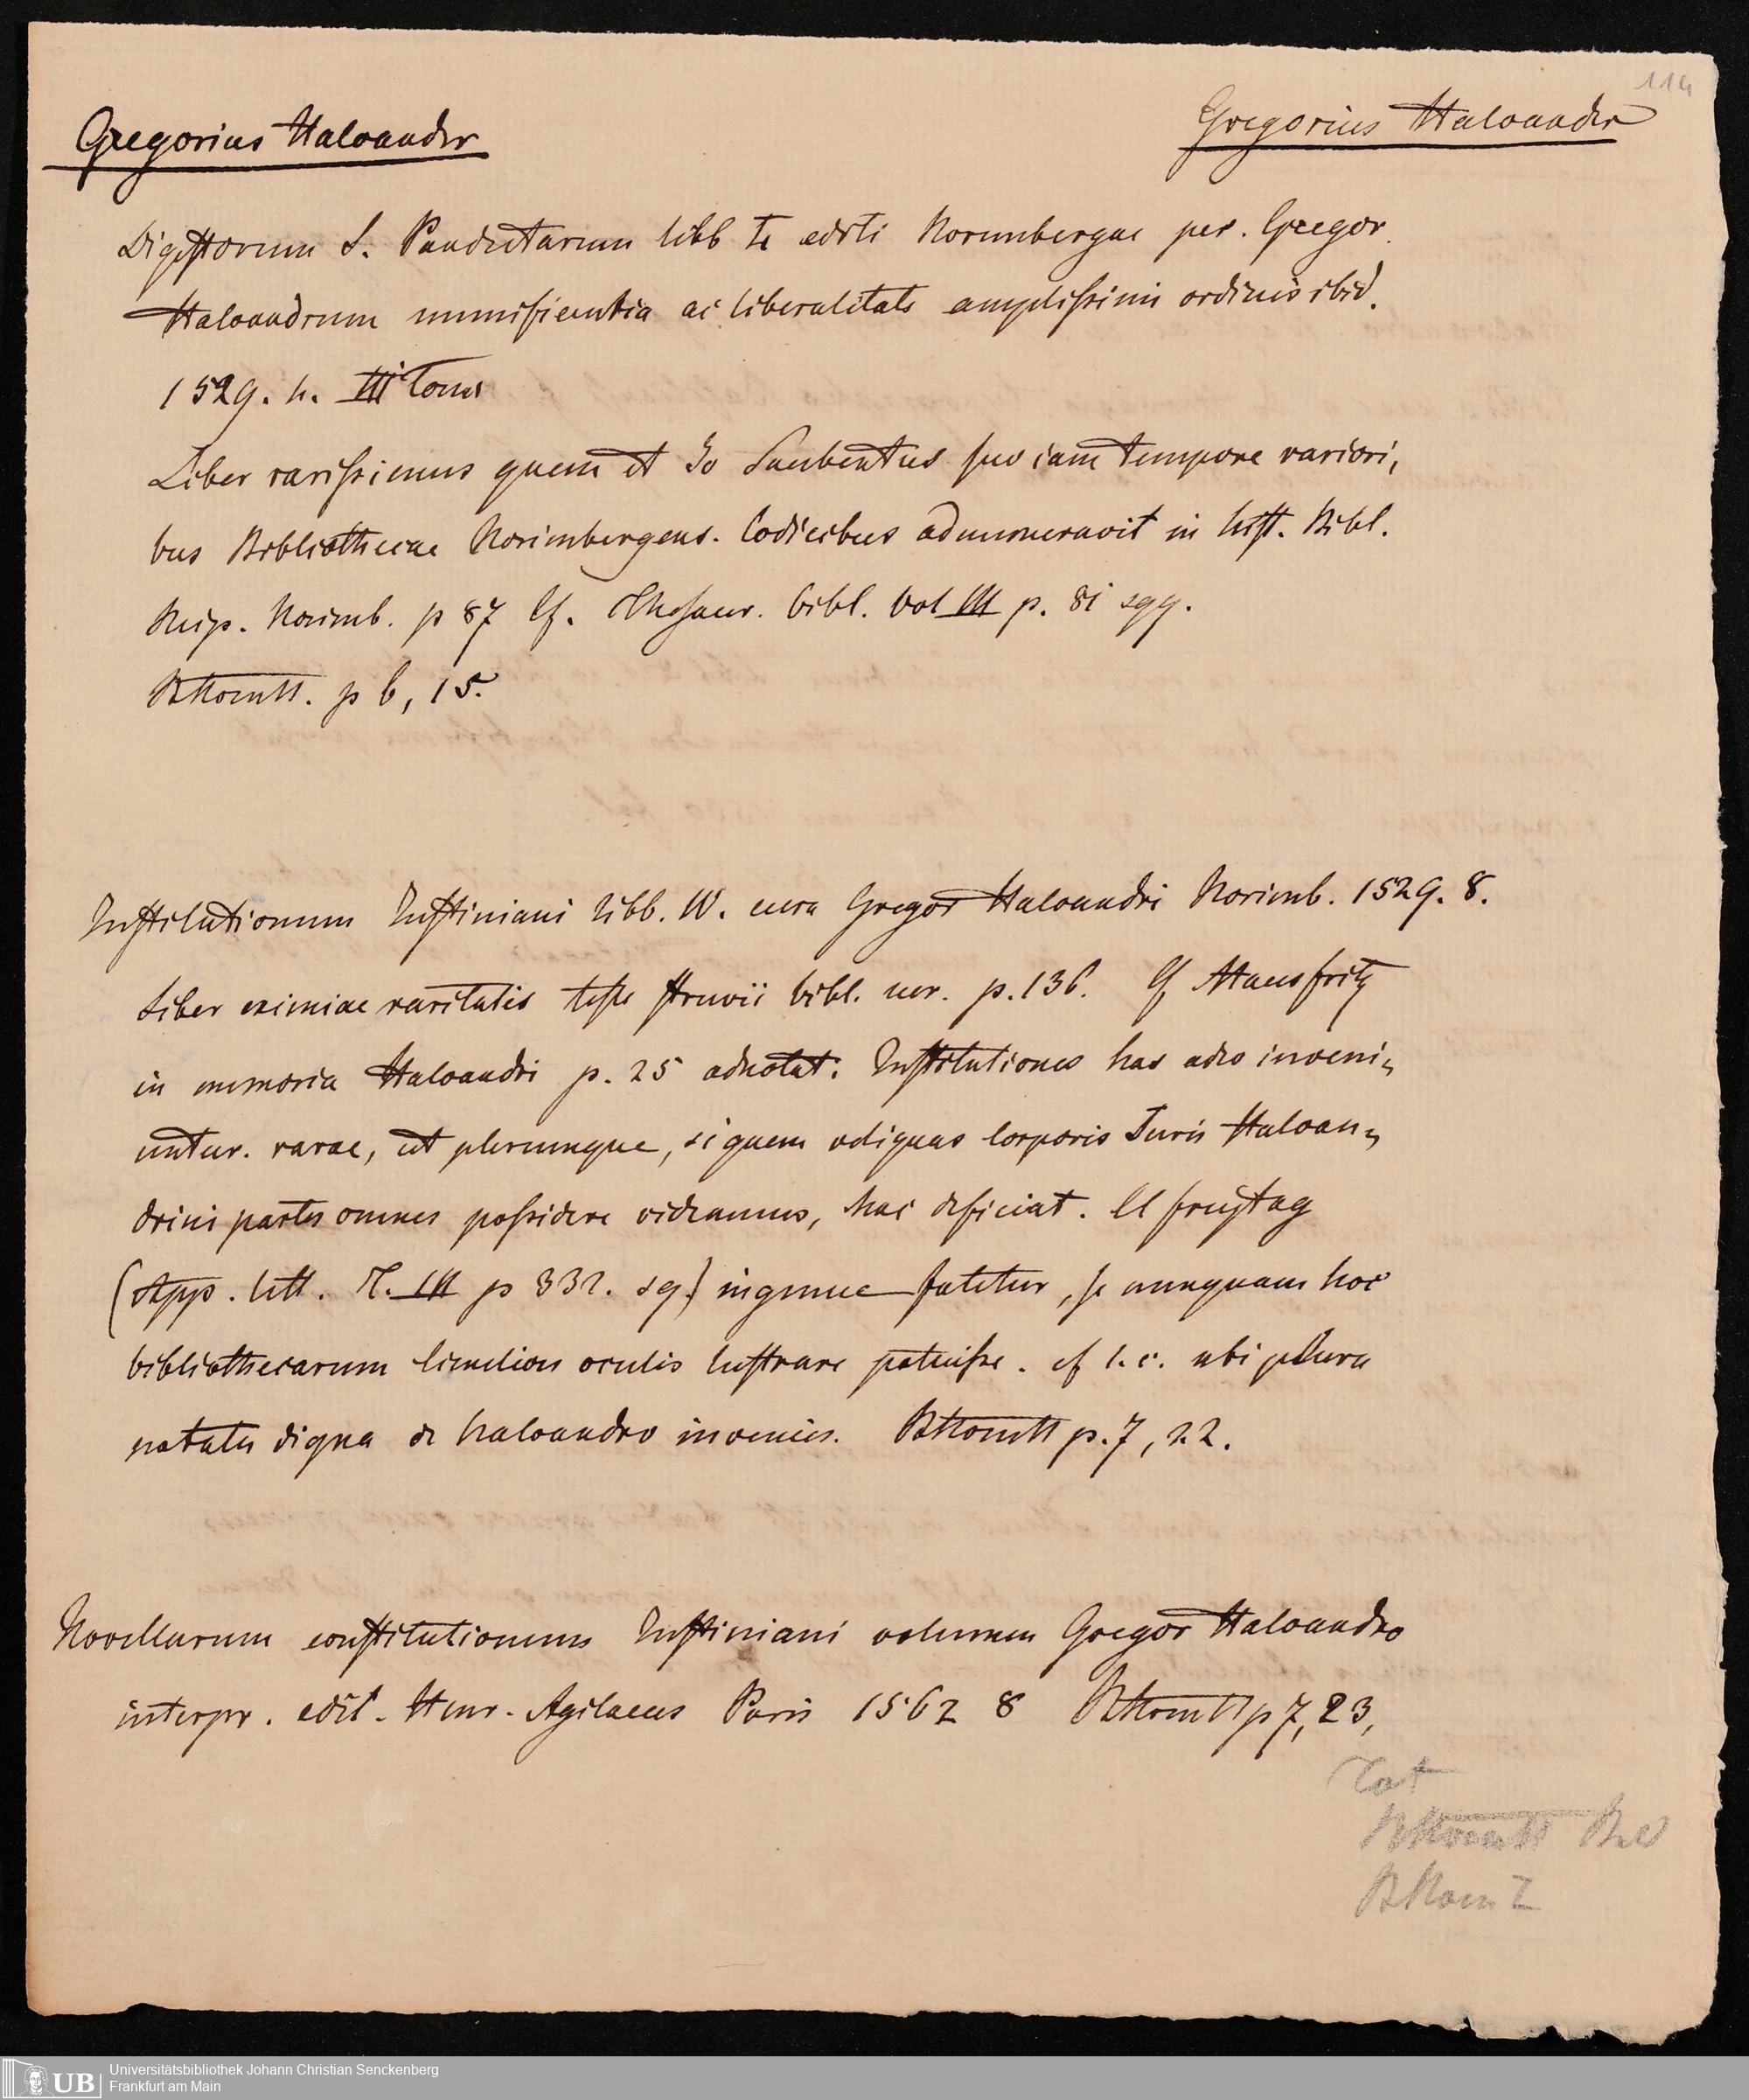 114
Gregorius Haloander
Gregorius Haloander
Digestorum s. Pandectarum libb L editi Norimbergae per. Gregor.
Haloandrum munificentia ac liberalitate amplissimi ordinis ibid.
1529. 4. III Tomi
Liber rarissimus quem et Io Saubertus suo iam tempore rariori-
bus Bibliothecae Norimbergens. Codicibus adnumeravit in hist. Bibl.
Reip. Norimb. p 87 Cf. Thesaur. bibl. Vol III p. 81 sqq.
p 6, 15.
Institutionum Iustiniani libb. IV. cura Gregor Haloandri Norimb. 1529. 8.
Liber eximiae raritatis teste Struvii bibl. p. 136. Cf Hausfritz
in memoria Haloandri p. 25 adnotat: Institutiones has adeo inveni-
untur. rarae, ut plerumque, si quem reliquas Corporis Iuris Haloan-
drini partes omnes possidere videamus, hac deficiat. Et Freytag
(App. litt. T. III p 332. sq.) ingenue fatetur, se nunquam hoc
bibliothecarum cimelion oculis lustrare potuisse. cf l. c. ubi plura
notatu digna de Haloandro invenies. p. 7, 22.
Novellarum constitutionum Iustiniani volumen Gregor Haloandro
interpr. edit. Henr. Agilaeus Paris 1562 8 p 7, 23,
Cat